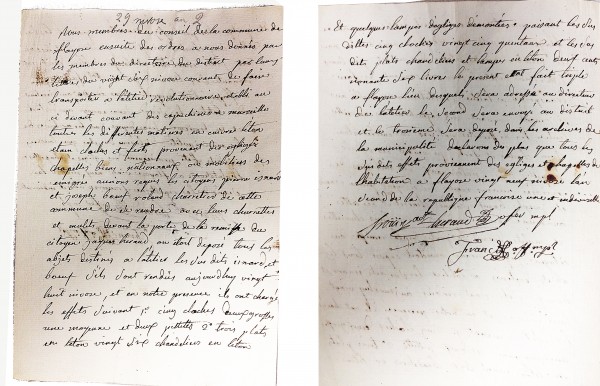 29 nivose an 2
Nous membres du conseil de la commune de
flayosc ensuite des ordres a nous donnés par
les membres du directoire du district par leurs
du vinght six nivose courant de faire
transporter a latelier révolutionnaire etabli au
ci devant couvent des capuchins a marseille
toutes les differentes matieres en cuivre leton
etain cloches et fert, provenant des eglises
chapelles biens nationnaux ou mobiliers des
emigrés aurions requis les citoyens pierre isnard
et joseph bœuf roland charretier de cette
commune de se rendre avec leurs charrettes
et mulets devant la porte de la remise du
citoyen jacques giraud ou etoit deposé tous les
objets destinés a latelier les sus dits isnard et
bœuf s'ils sont rendus aujourdhuy vingt
huit nivose, et en notre presence ils ont chargé
les effets suivant 1° cinq cloches deux grosses
une moyenne et deux petites 2° trois plats
en leton vingt six chandeliers en leton
et quelques lampes deglises demontées paisant les sus
dittes cinq cloches vingt cinq quintaux et les sus
dits plats chandeliers et lampes en leton deux cents
six livres le present etat fait triple
a flayosc lieu desquels sera adressé au directeur
de latelier le second sera envoyé au district
et le troisieme sera deposé dans les archives de
la municipalité declarons de plus que tous les
dits effets proviennent des eglises et chapelles de
lhabitation a flayosc vingt neuf nivose lan
second de la republique francoise une et indivisible
giraud off mpl
off mpl